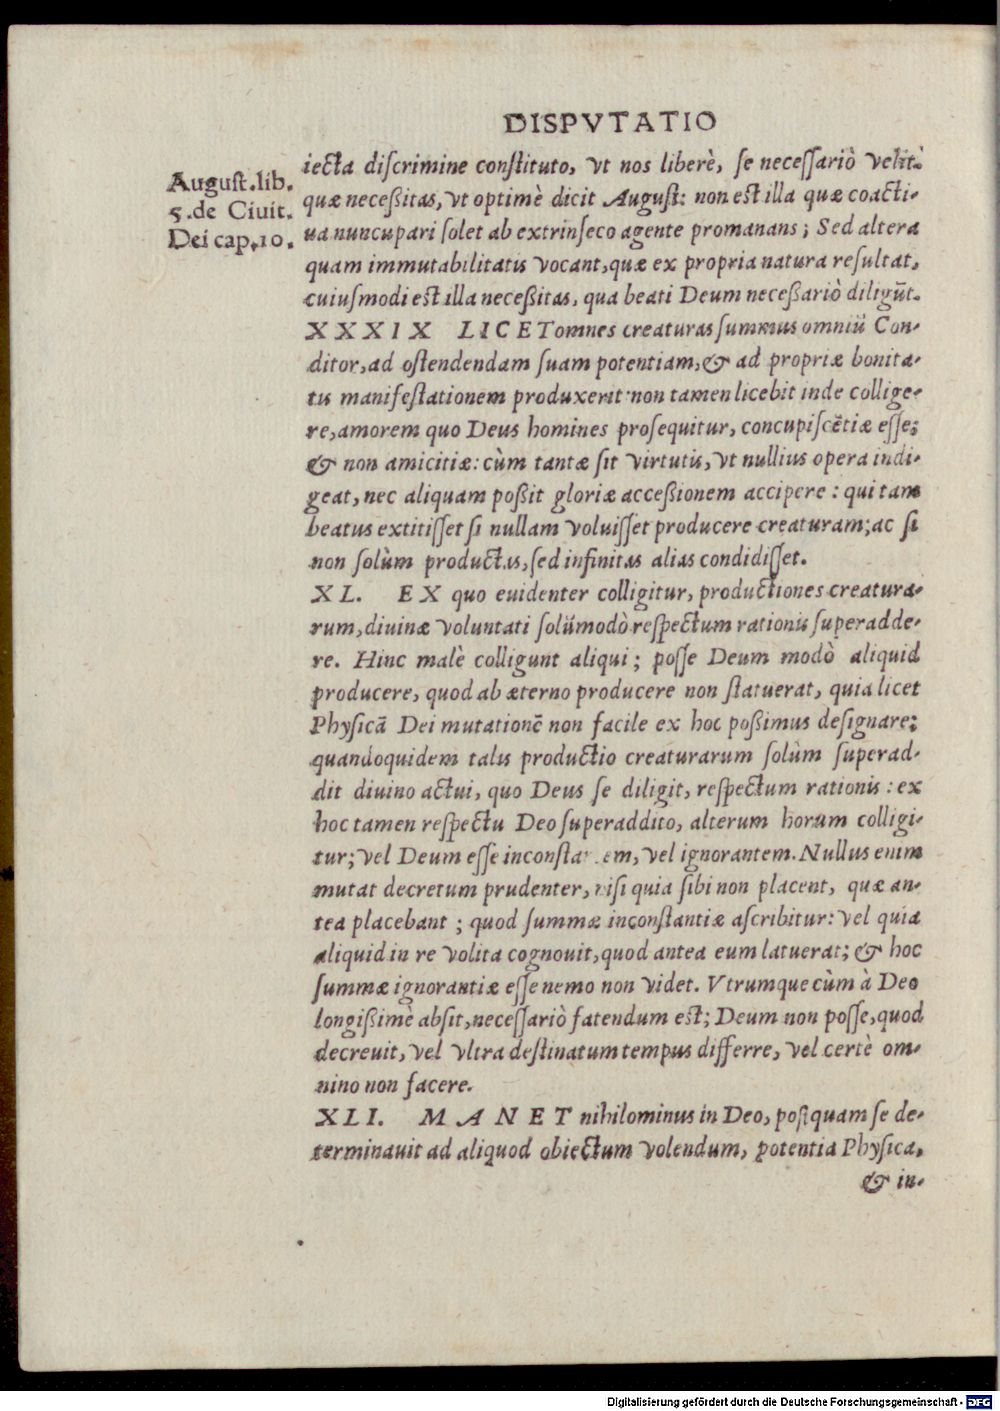 DISPVTATIO
August. lib.
5. de Ciuit.
Dei cap. 10.
iecta discrimine constituto, vt nos liberè, se necessariò velit:
quæ necessitas, vt optimè dicit August: non est illa quæ coacti-
ua nuncupari solet ab extrinseco agente promanans; Sed altera
quam immutabilitatis vocant, quæ ex propria natura resultat,
cuiusmodi est illa necessitas, qua beati Deum necessariò diligūt.
XXXIX LICET omnes creaturas summus omniū Con-
ditor, ad ostendendam suam potentiam, & ad propriæ bonita-
tis manifestationem produxerit: non tamen licebit inde collige-
re, amorem quo Deus homines prosequitur, concupiscētiæ esse;
& non amicitiæ: cùm tantæ sit virtutis, vt nullius opera indi-
geat, nec aliquam possit gloriæ accessionem accipere: qui tam
beatus extitisset si nullam voluisset producere creaturam; ac si
non solùm productas, sed infinitas alias condidisset.
XL. EX quo euidenter colligitur, productiones creatura-
rum, diuinæ voluntati solūmodò respectum rationis superadde-
re. Hinc malè colligunt aliqui; posse Deum modò aliquid
producere, quod ab æterno producere non statuerat, quia licet
Physicā Dei mutationē non facile ex hoc possimus designare;
quandoquidem talis productio creaturarum solùm superad-
dit diuino actui, quo Deus se diligit, respectum rationis: ex
hoc tamen respectu Deo superaddito, alterum horum colligi-
tur; vel Deum esse inconstantem, vel ignorantem. Nullus enim
mutat decretum prudenter, nisi quia sibi non placent, quæ an-
tea placebant; quod summæ inconstantiæ ascribitur: vel quia
aliquid in re volita cognouit, quod antea eum latuerat; & hoc
summæ ignorantiæ esse nemo non videt. Vtrumque cùm à Deo
longissimè absit, necessariò fatendum est; Deum non posse, quod
decreuit, vel vltra destinatum tempus differre, vel certè om-
nino non facere.
XLI. MANET nihilominus in Deo, postquam se de-
terminauit ad aliquod obiectum volendum, potentia Physica,
& in-
Digitalisierung gefördert durch die Deutsche Forschungsgemeinschaft - DFG